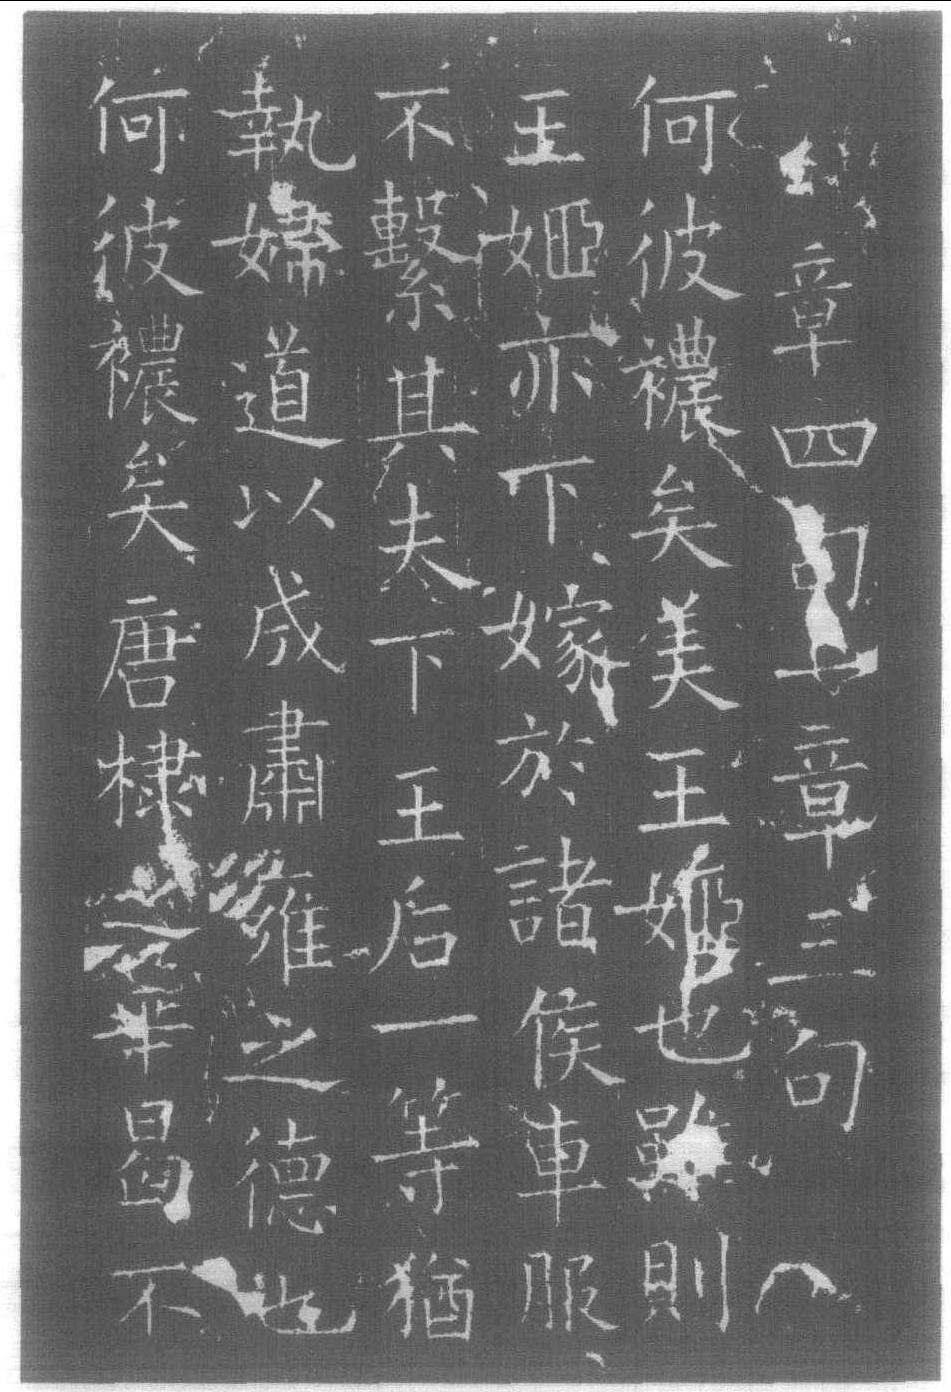 章四句一章三句
何彼襛矣美王姬也雖則
王姬亦下嫁於諸侯車服
不繫其夫下王后一等猶
執婦道以成肅雍之德也
何彼襛矣唐棣之華曷不